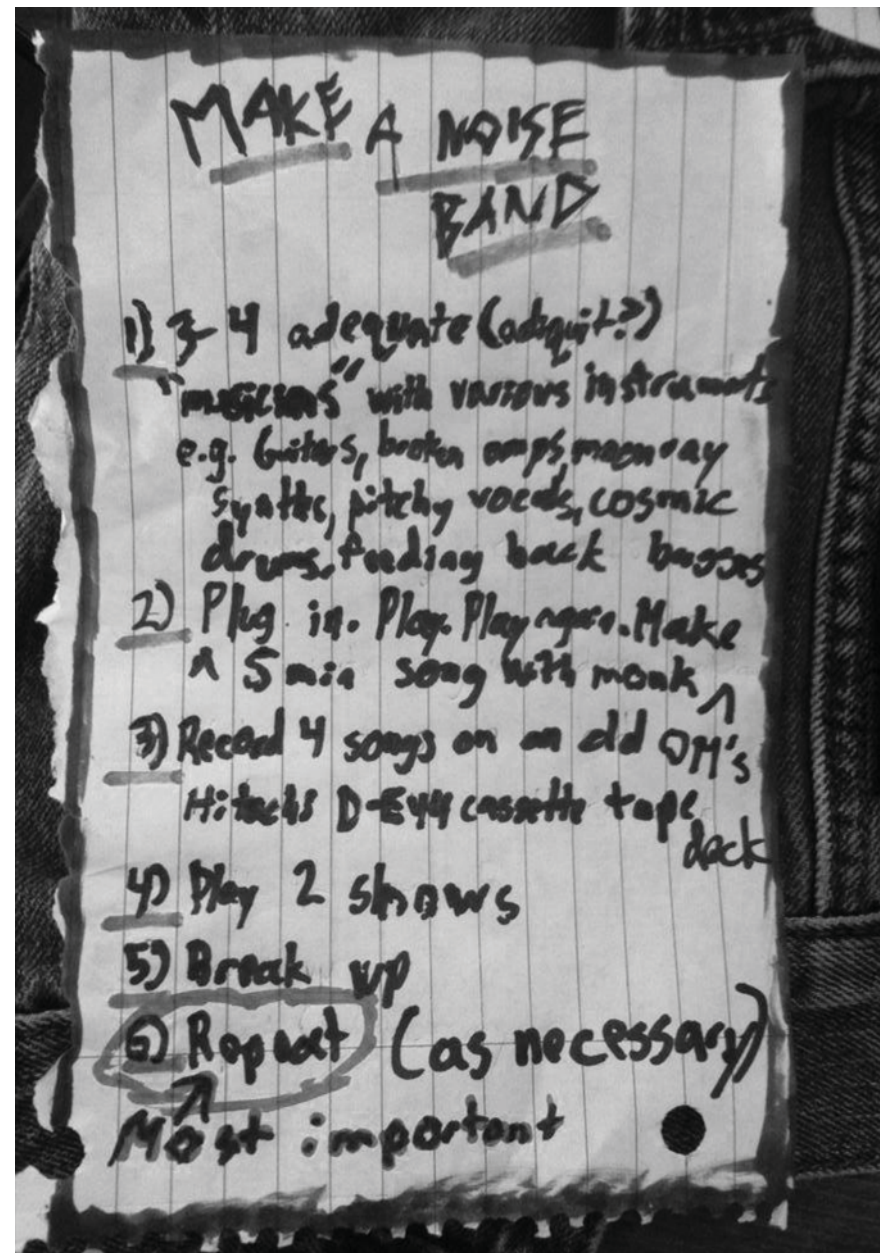 MAKE A NOISE
BAND
1) 3-4 adequate (adiquit?)
"musicians" with various instruments
e.g. Guitars, broken amps, moon ray
synths, pitchy vocals, cosmic
drums, feeding back basses
2) Plug in. Play. Play again. Make
A 5 min song with monk
3) Record 4 songs on an old
Hitachi D-E44 cassette tape
deck
4) Play 2 shows
5) Break up
6) Repeat (as necessary)
Most important